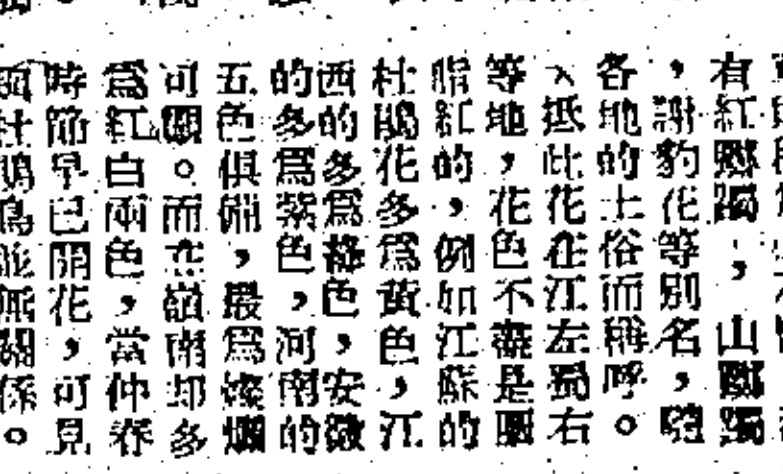 有紅躑躅，山躑躅
，謝豹花等別名，隨
各地的土俗而稱呼。
大抵此花在江左蜀右
等地，花色不盡是臙
脂紅的，例如江蘇的
杜鵑花多爲黃色，江
西的多爲色，安徽
的多爲紫色，河南的
五色俱備，最爲燦爛
可觀。而在嶺南却多
爲紅白兩色，當仲春
時節早已開花，可見
杜鵑鳥並無關係。